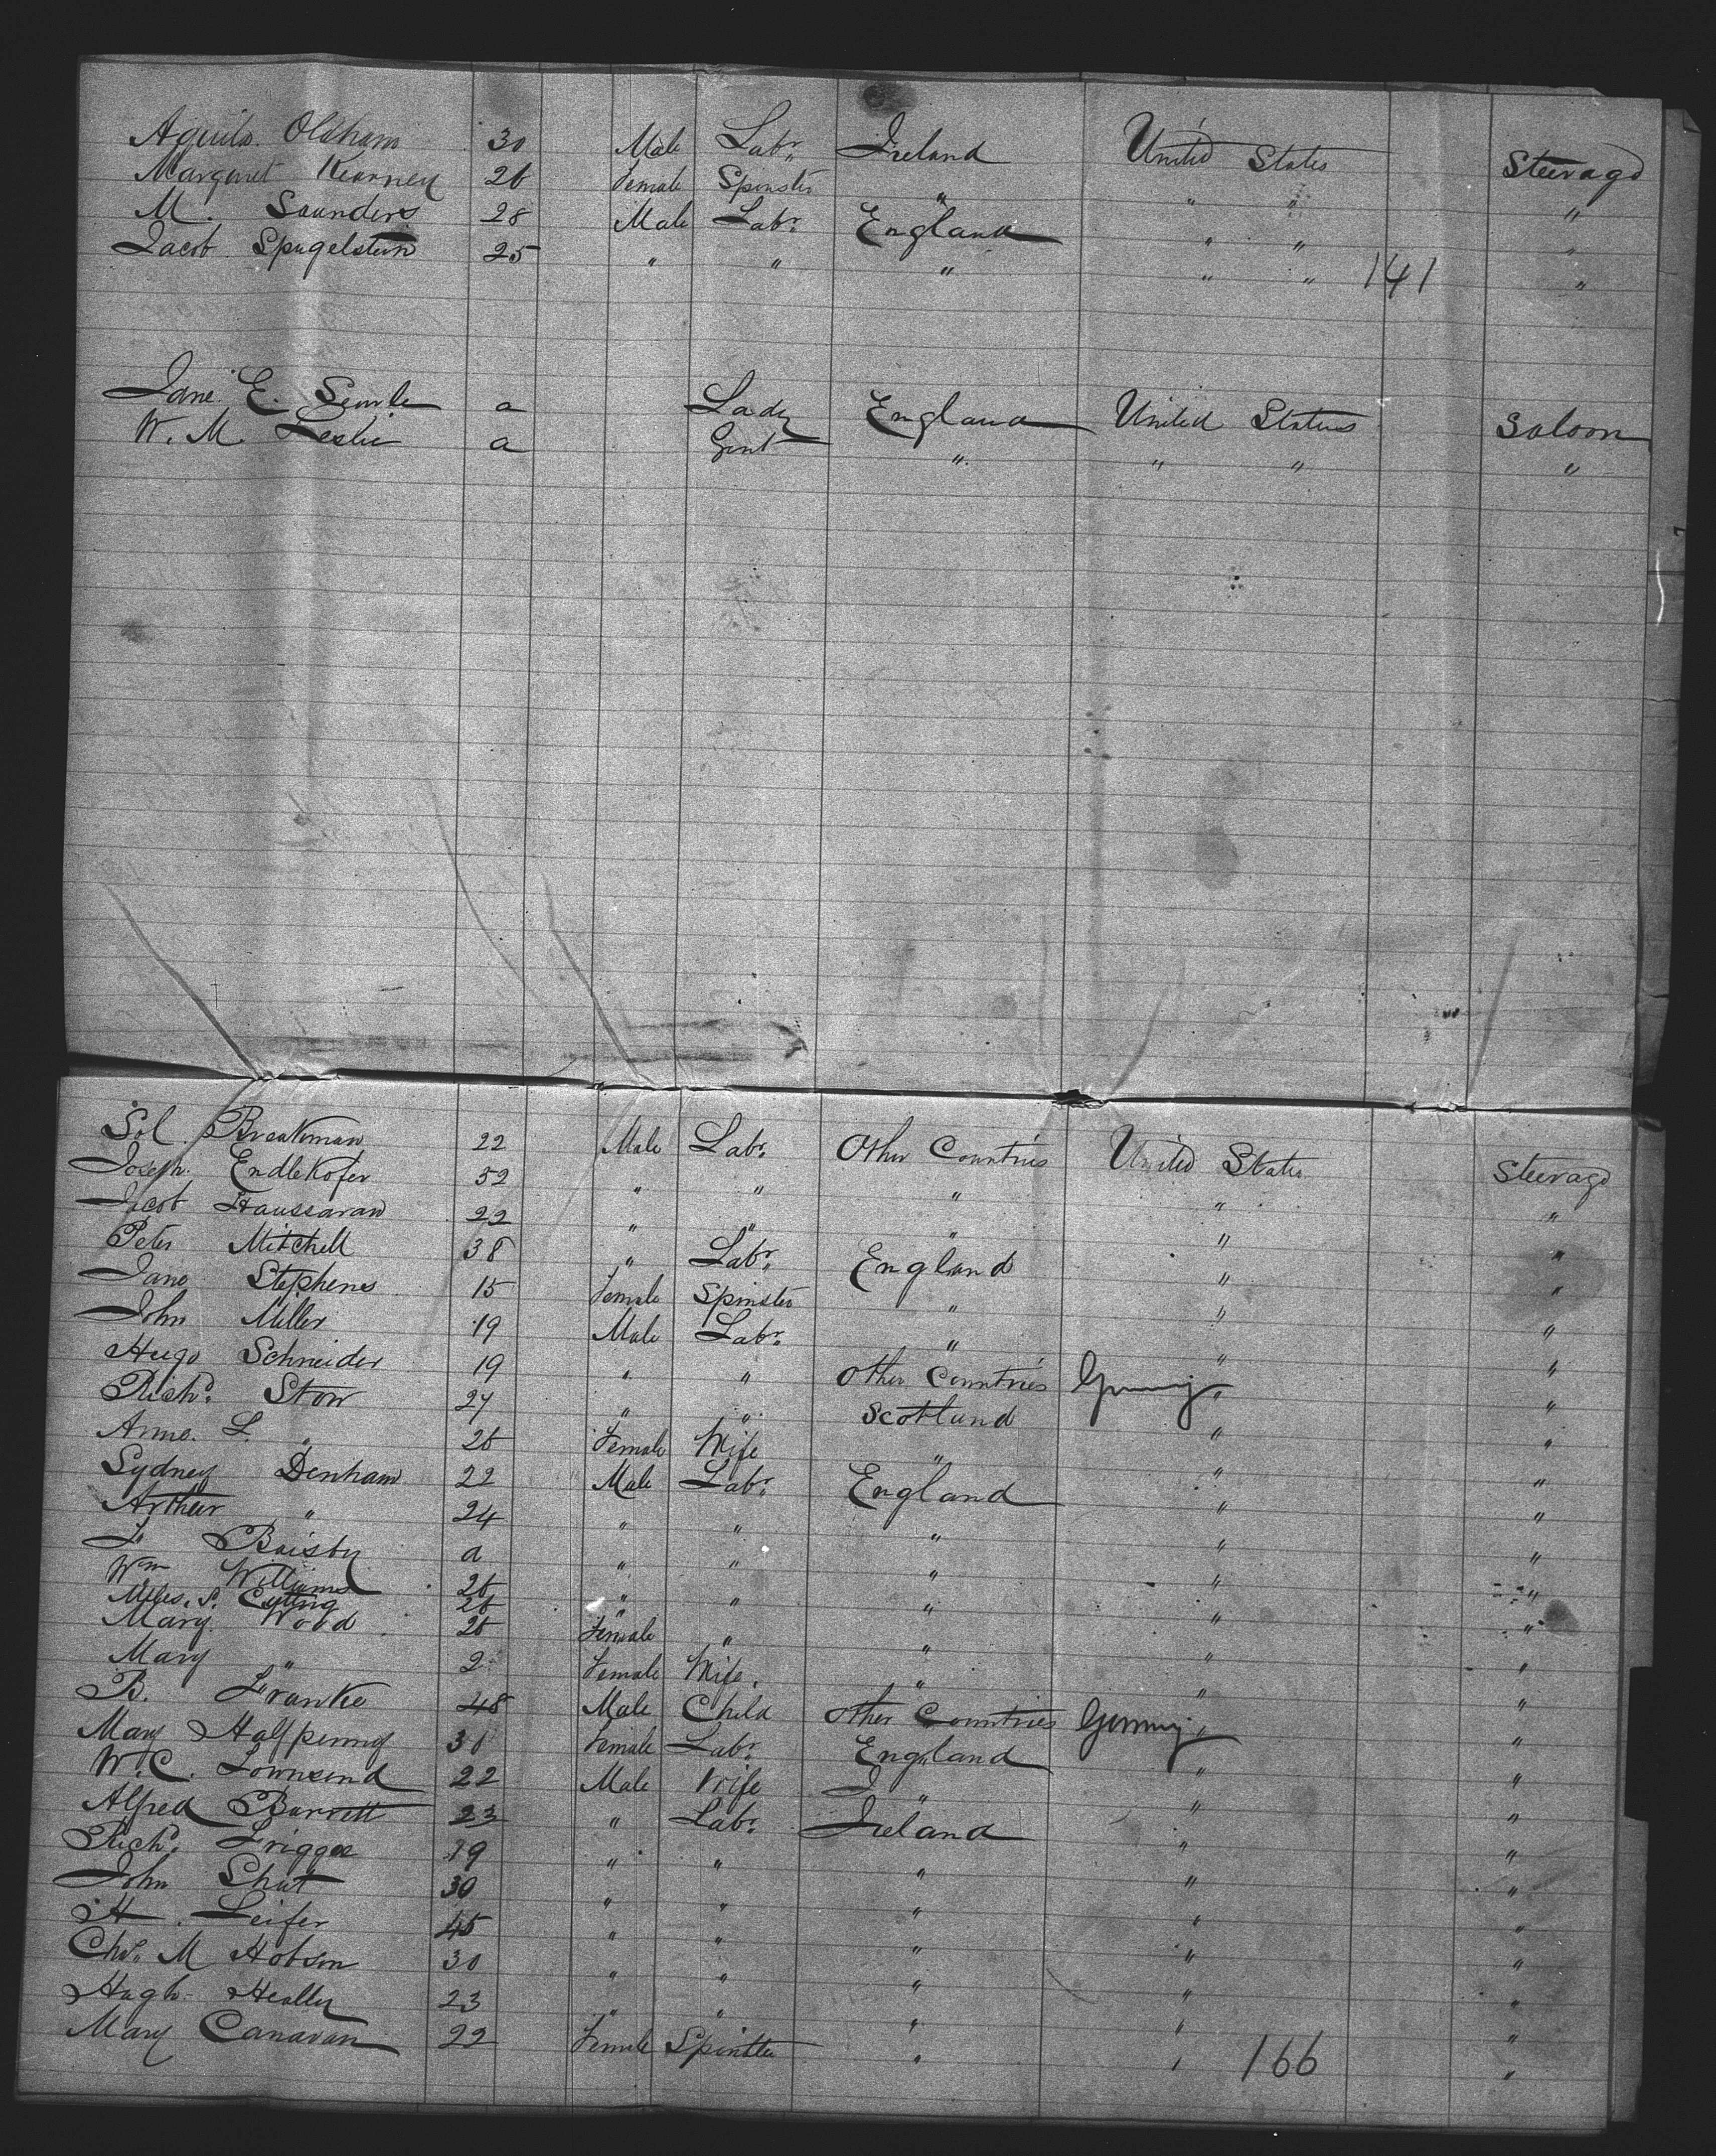 Aquila Oldham 30 Male Labr. Ireland United States Steerage
Margaret Kearney 26 Female Spinster " " " "
M. Saunders 28 Male Labr. England " " "
Jacob Spugelstein 25 " " " " " 141 "
Jane E. Semle a Lady England United States Saloon
W. M. Leslie a Gent " " " "
Sol. Breakman 22 Male Labr. Other Countries United States Steerage
Joseph Endlekofer 52 " " " " "
Jacob Haussaran 22 " " " " "
Peter Mitchell 38 " Labr. England " "
Jane Stephens 15 Female Spinster " " "
John Miller 19 Male Labr. " " "
Hugo Schneider 19 " " Other Countries Germany " "
Richd. Stow 27 " " Scotland " "
Anne. L. " 26 Female Wife " " "
Sydney Denham 22 Male Labr. England " "
Arthur " 24 " " " " "
L Baisby a " " " " "
Wm Williams 26 " " " " "
Miles. S. Cytting 26 "
Mary Wood 26 Female " " " "
Mary " 2 Female Wife. " " "
B. Franke 48 Male Child Other Countries Germany " "
Mary Halfpenny 30 Female Labr. England " "
W. C. Townsend 22 Male Wife " " "
Alfred Barrett 23 " Labr. Ireland " "
Richd. Frigger 19 " " " " "
John Shut 30 " " " " "
H. Leifer 45 " " " " "
Chs. M Hobson 30 " " " " "
Hugh Heally 23 " " " " "
Mary Canavan 22 Female Spinster " " 166 "